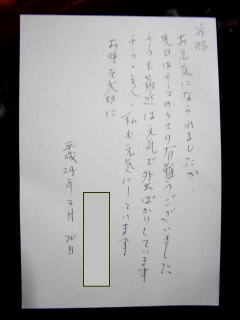 前略
お元気になられましたか、
先日はチーコのクスリ有難うございました
チーコも最近は元気で外出ばかりしています
チーコ、主人、私も元気にしています
お体を大切に
平成24年3月20日